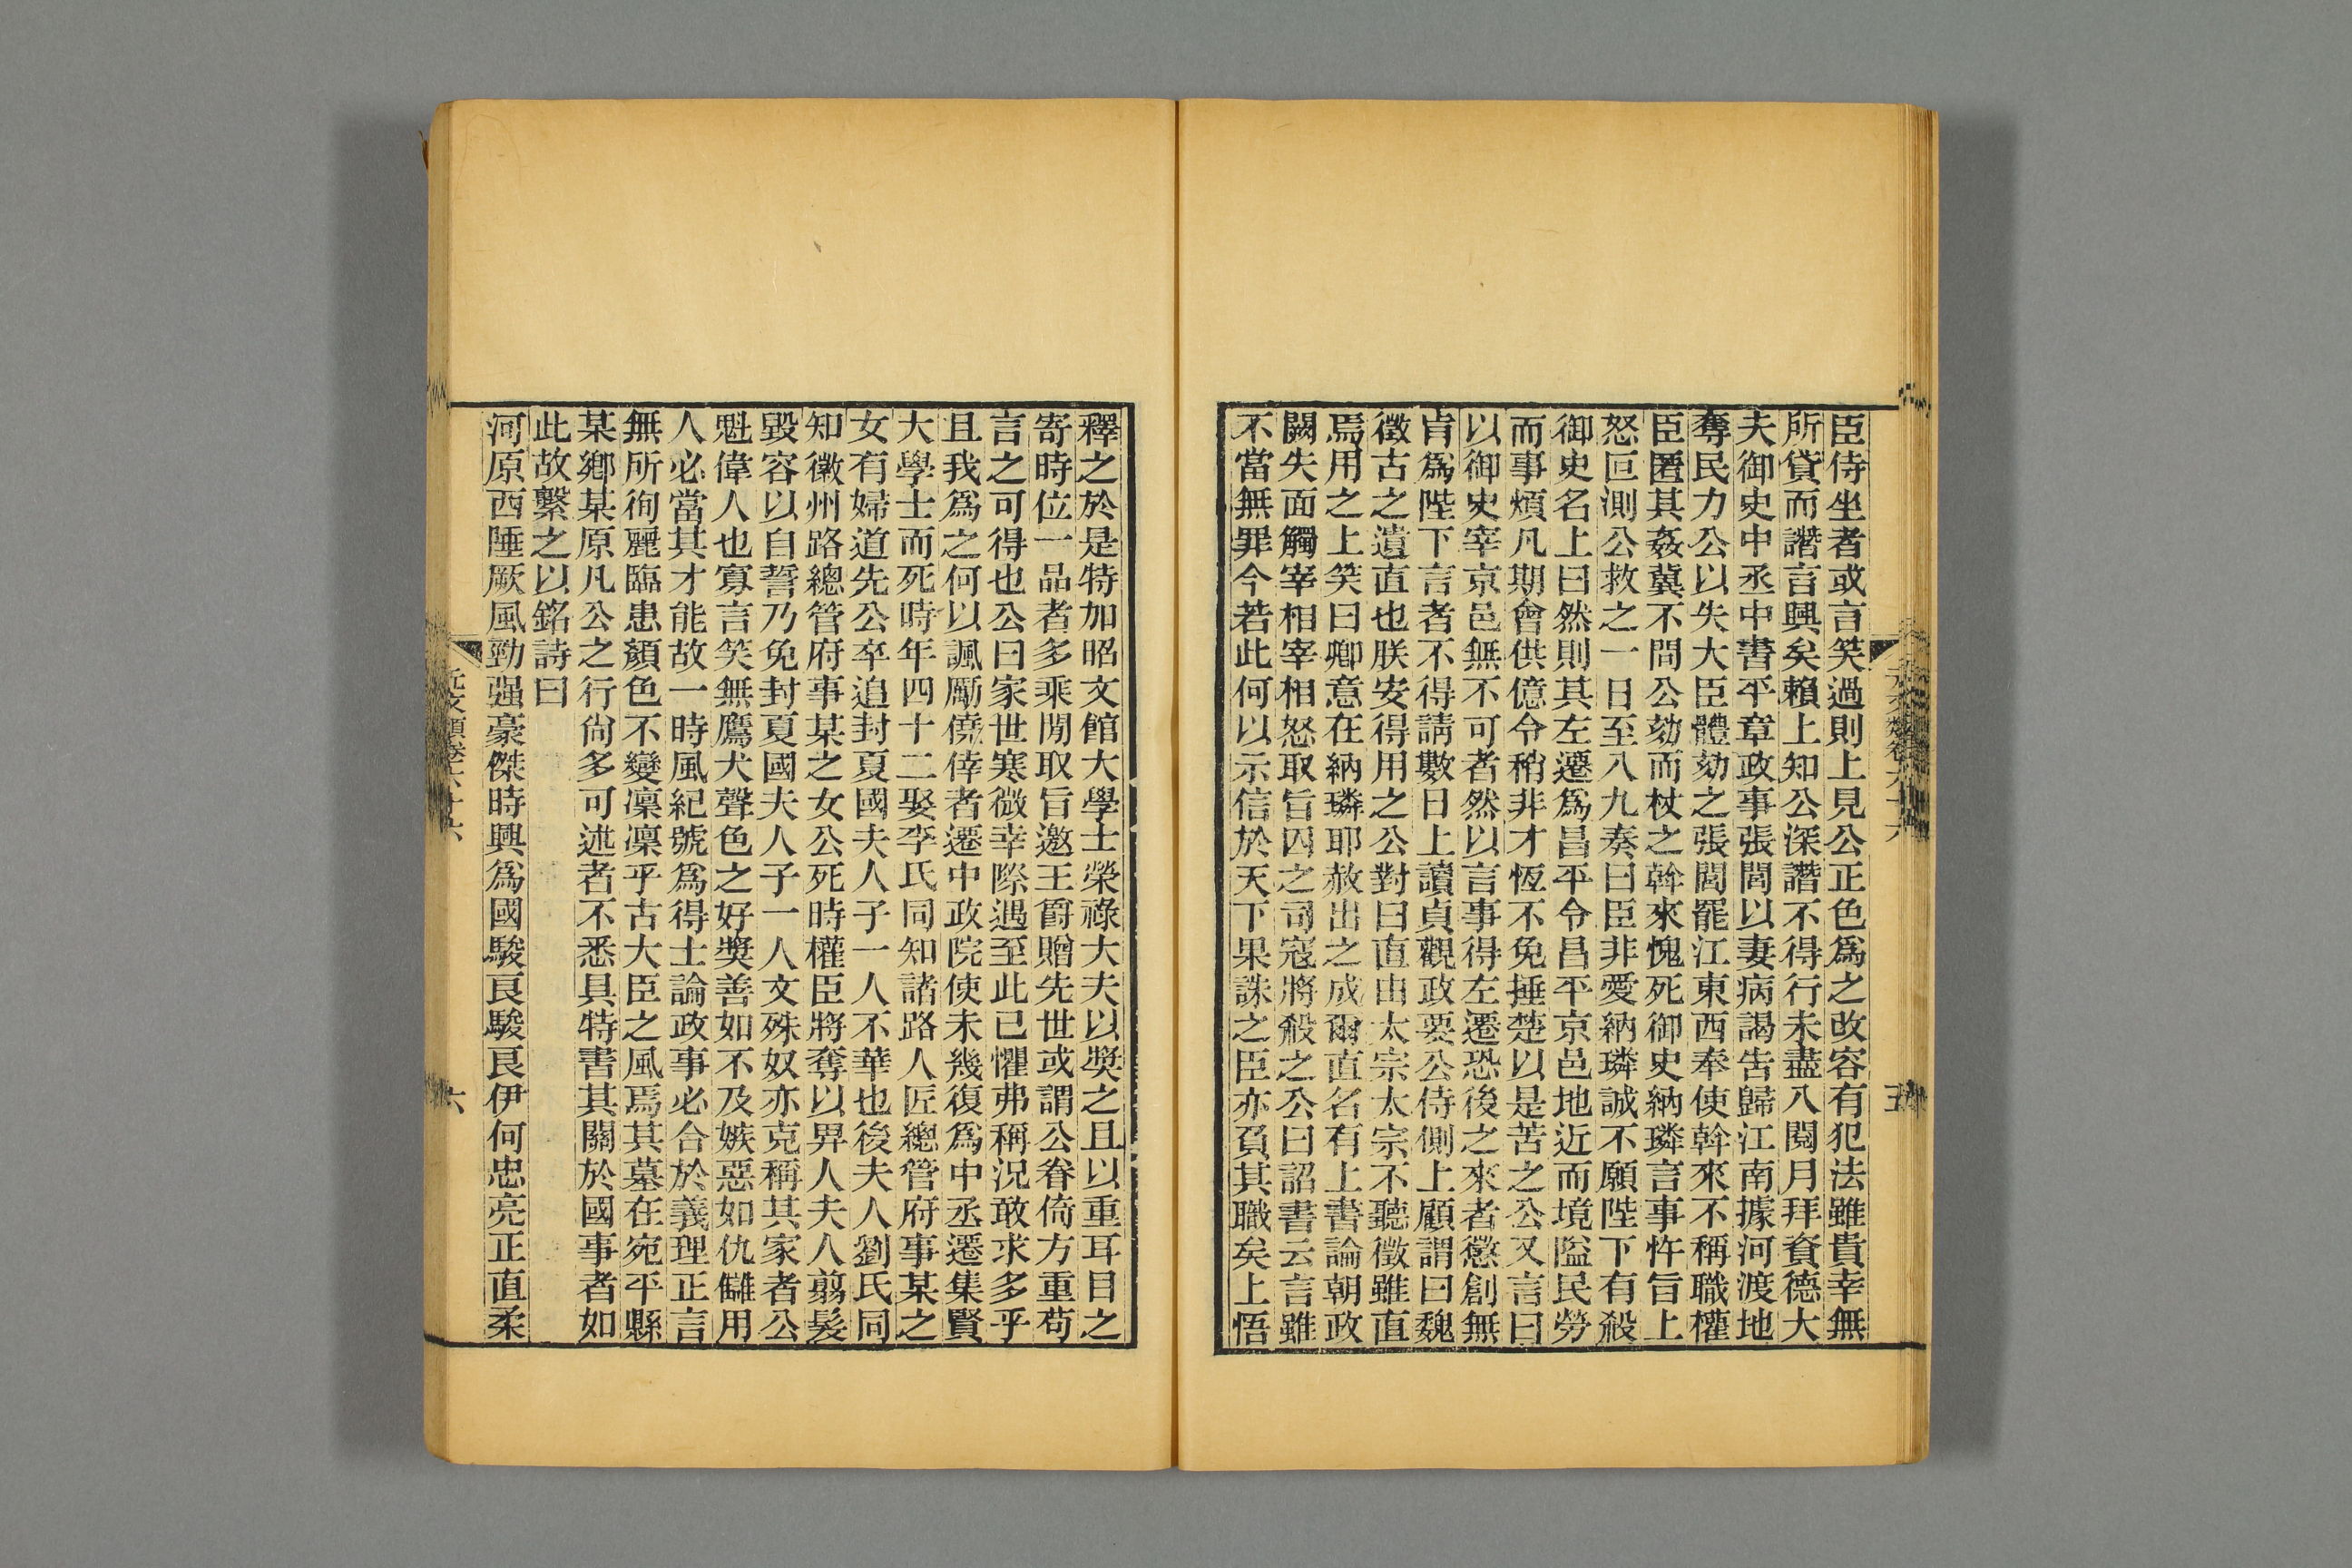 臣侍坐者或言笑過則上見公正色爲之改容有犯法雖貴幸無
所貸而譖言興矣賴上知公深譖不得行未盡八閱月拜資德大
夫御史中丞中書平章政事張閭以妻病謁告歸江南據河渡地
奪民力公以失大臣體劾之張閭罷江東西奉使斡來不稱職權
臣匿其姦冀不問公劾而杖之斡來愧死御史納璘言事忤旨上
怒叵測公救之一日至八九奏曰臣非愛納璘誠不願陛下有殺
御史名上曰然則其左遷爲昌平令昌平京邑地近而境隘民勞
而事煩凡期會供億令稍非才恆不免捶楚以是苦之公又言曰
以御史宰京邑無不可者然以言事得左遷恐後之來者懲創無
肯爲陛下言者不得請數日上讀貞觀政要公侍側上顧謂曰魏
徵古之遺直也朕安得用之公對曰直由太宗太宗不聽徵雖直
焉用之上笑曰卿意在納璘耶赦出之成爾直名有上書論朝政
闕失面觸宰相宰相怒取旨囚之司寇將殺之公曰詔書云言雖
不當無罪今若此何以示信於天下果誅之臣亦負其職矣上悟
釋之於是特加昭文館大學士榮祿大夫以奬之且以重耳目之
寄時位一品者多乘閒取旨邀王爵贈先世或謂公眷倚方重苟
言之可得也公曰家世寒微幸際遇至此已懼弗稱況敢求多乎
且我爲之何以諷勵僥倖者遷中政院使未幾復爲中丞遷集賢
大學士而死時年四十二娶李氏同知諸路人匠總管府事某之
女有婦道先公卒追封夏國夫人子一人不華也後夫人劉氏同
知徽州路總管府事某之女公死時權臣將奪以畀人夫人翦髮
毀容以自誓乃免封夏國夫人子一人文殊奴亦克稱其家者公
魁偉人也寡言笑無鷹犬聲色之好奬善如不及嫉惡如仇讎用
人必當其才能故一時風紀號爲得士論政事必合於義理正言
無所徇麗臨患顏色不變凜凜乎古大臣之風焉其墓在宛平縣
某鄉某原凡公之行尙多可述者不悉具特書其關於國事者如
此故繫之以銘詩曰
河原西陲厥風勁强豪傑時興爲國駿良駿良伊何忠亮正直柔
六